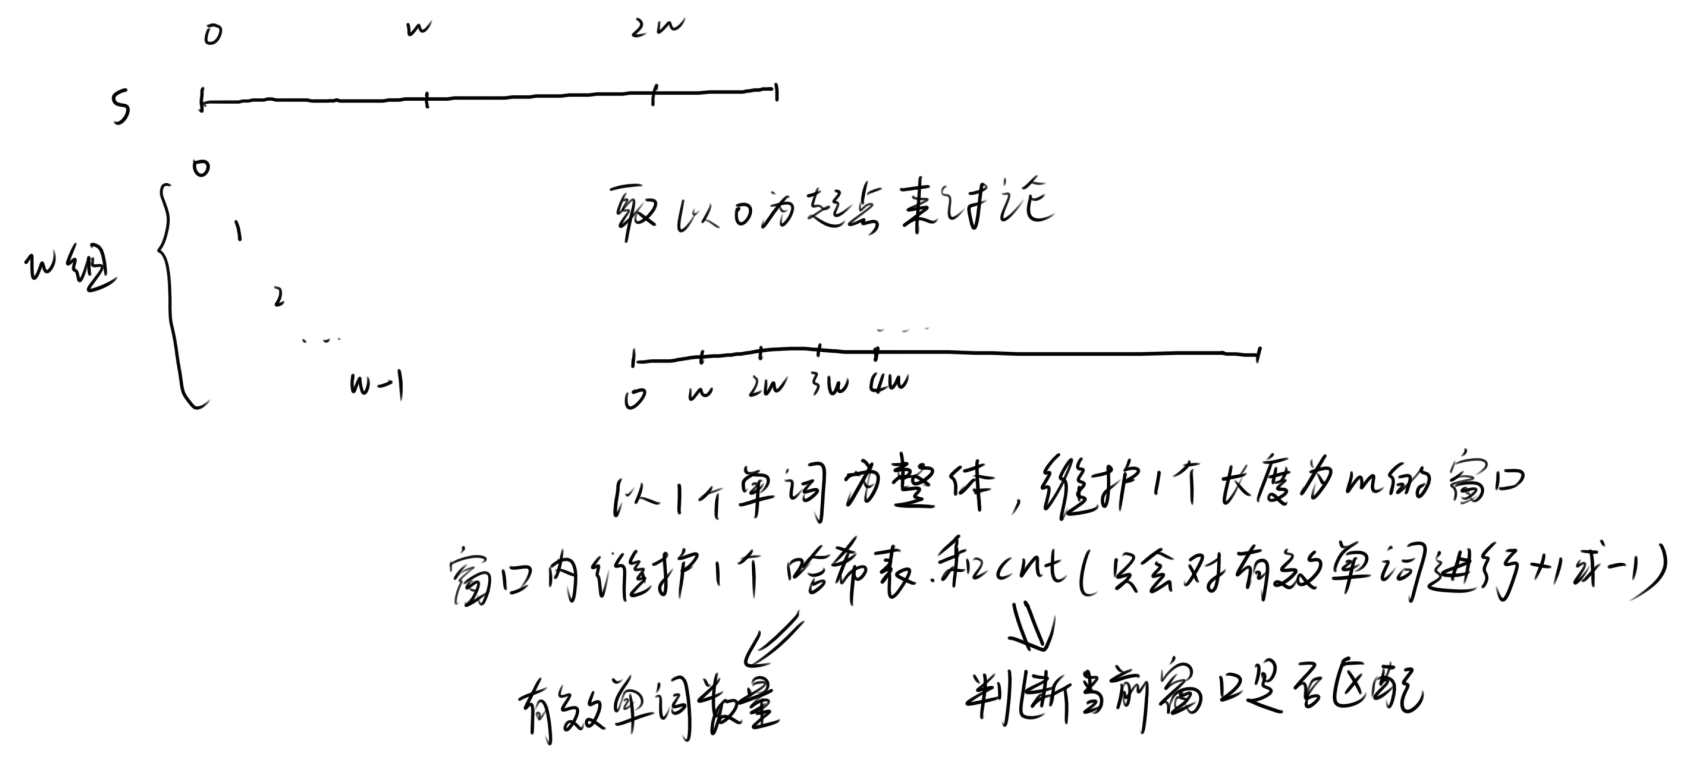 0 w 2w
S
0
1
2
...
w-1
w组
取以0为起点来讨论
....
0 w 2w 3w 4w
以1个单词为整体,维护1个长度为m的窗口
窗口内维护1个哈希表.和cnt(只会对有效单词进行+1或-1)
有效单词数量
判断当前窗口是否匹配